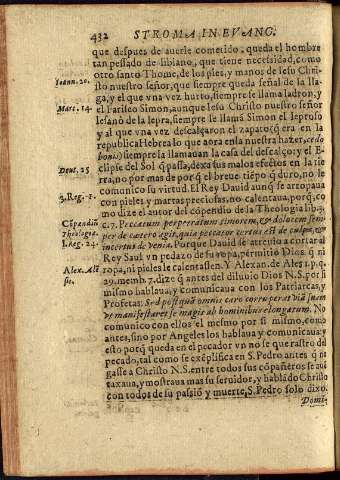 432 STROMA IN EVANG.
que despues de auerle cometido, queda el hombre
tan pessado de liuiano, que tiene necessidad, como
otro santo Thome, de los pies, y manos de Iesu Chri-
Ioann. 20.
sto nuestro señor, que siempre queda señal de la lla-
ga, y el que vna vez hurto, siempre se llama ladron, y
Marc. 14.
el Fariseo Simon, aunque Iesu Christo nuestro señor
le sanò de la lepra, siempre se llama Simon el leproso
y al que vna vez descalçaron el zapato (q̃ era en la
republica Hebrea lo que aora en la nuestra hazer, ced
bonis) siempre la llamauan la casa del descalço; y el E-
clipse del Sol q̃ passa, dexa sus malos efectos en la tie
Deut. 25
rra, no por mas de por q̃ el breue tiẽpo q̃ duro, no le
comunico su virtud. El Rey Dauid aunq̃ se arropaua
3. Reg. 1.
con pieles y martas preciosas, no calentaua, porq̃, co
mo dize el autor del cõpendio de la Theologia lib. 3.
Cõpendiũ
c. 7. Peccatum perpetratum timorem, & dolorem sem
Theologiæ.
per de cætero agit, quia peccator certus est de culpa, &
incertus de venia. Porque Dauid se atreuio a cortar al
1. Reg. 24.
Rey Saul vn pedazo de su ropa, permitio Dios q̃ ni
ropa, ni pieles le calentassen. Y Alexan. de Ales 1. p. q.
Alex. Ale
sis.
29. memb. 7. dize q̃ antes del diluuio Dios N. S. por si
mismo hablaua, y comunicaua con los Patriarcas, y
Profetas: Sed postquã omnis caro corruperat viã suam
de manifestaret se magis ab hominibus elongatum. No
comunico con ellos el mesmo por si mismo, como
antes, sino por Angeles los hablaua y comunicaua; y
esto porq̃ queda en el pecador vn no se que rastro del
pecado, tal como se exẽplifica en S. Pedro antes q̃ ne
gasse a Christo N. S. entre todos sus cõpañeros se auẽ
taxaua, y mostraua mas su seruidor, y hablãdo Christo
con todos de su passiõ y muerte, S. Pedro solo dixo.
Domi-